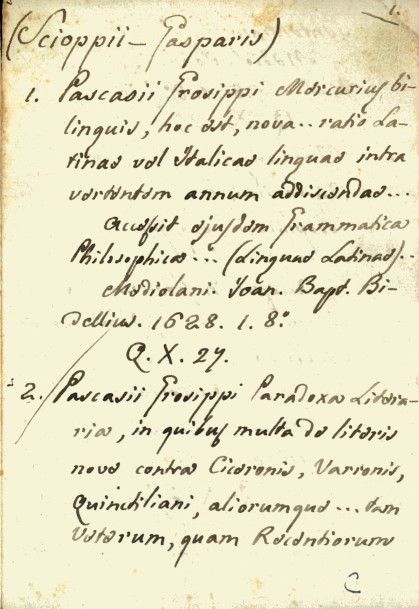 1.
(Scioppii - Gasparis)
1. Pascasii Grosippi Mercurius bi-
linguis, hoc est, nova.. ratio La-
tinae vel Italicae linguae intra
vertentem annum addiscendae...
Accessit ejusdem Grammatica
Philosophica ... (Linguae Latinae)..
Mediolani. Joan. Bapt. Bi-
dellius. 1628. 1. 8.º
Q. X. 27.
2. Pascasii Grosippi Paradoxa Litera-
ria, in quibus multa de literis
nove contra Ciceronis, Varronis,
Quinctiliani, aliorumque ... tam
Veterum, quam Recentiorum
C